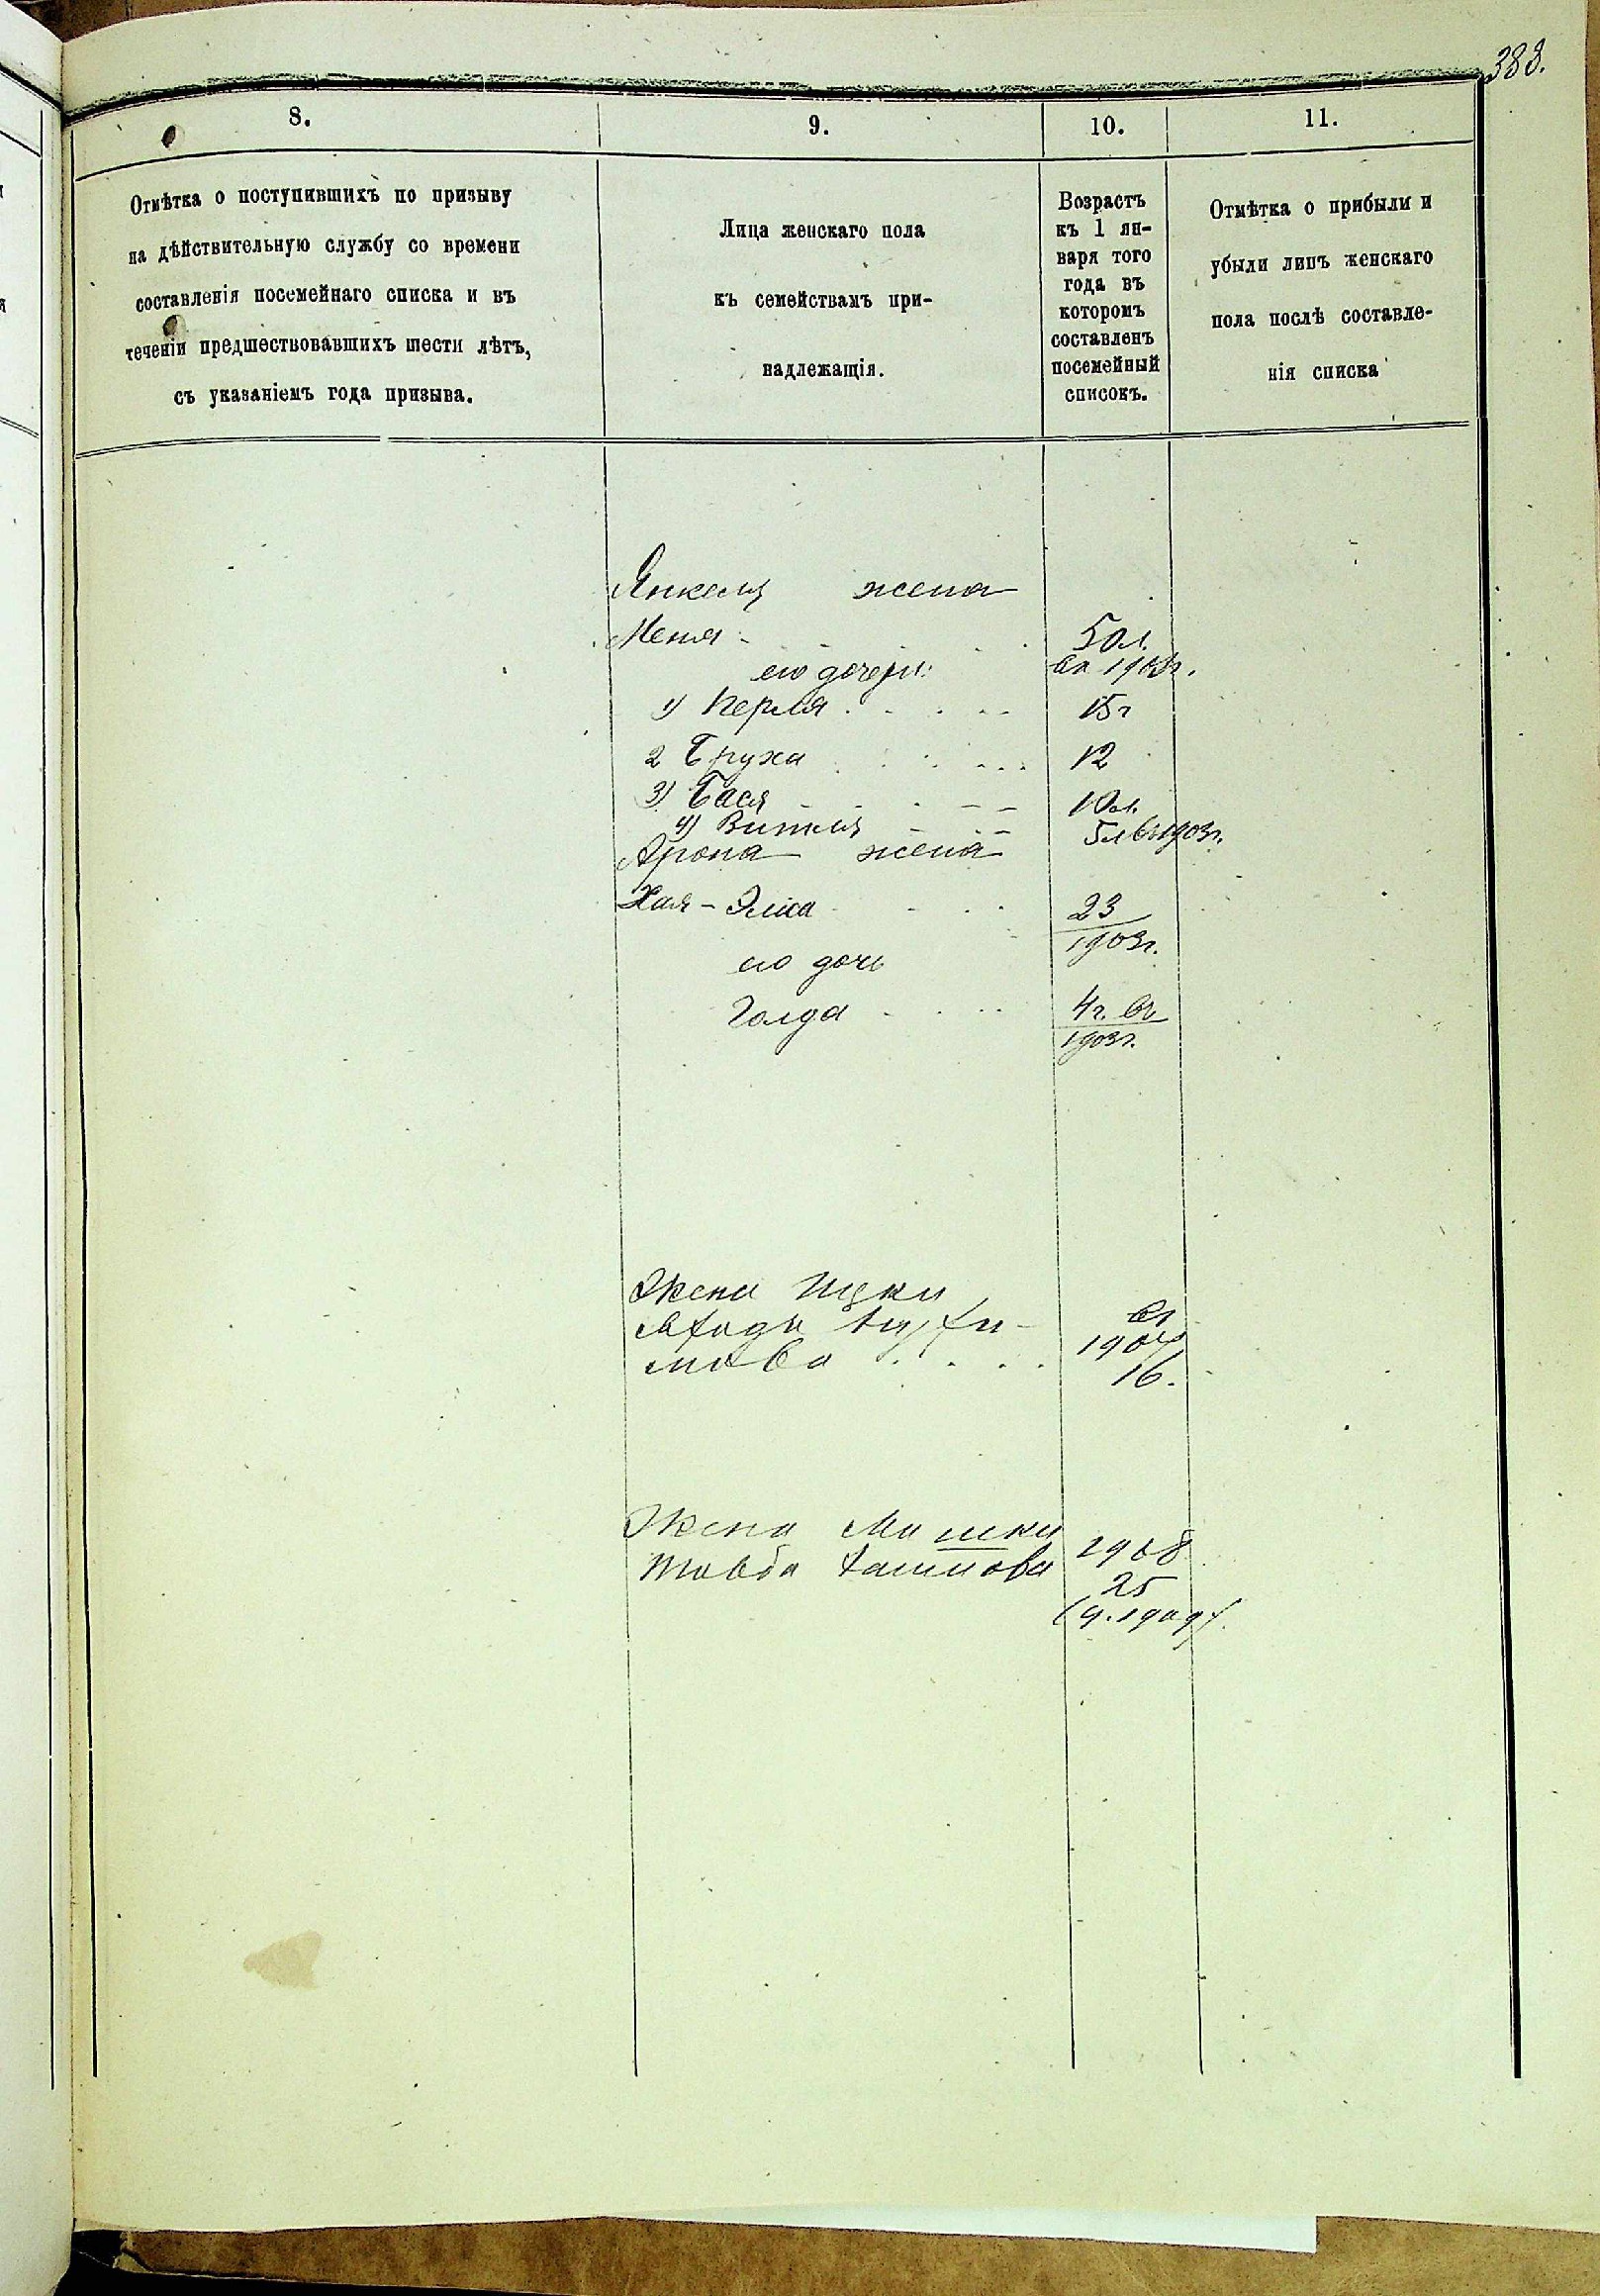 383.
8.
9.
10.
11.
Отмѣтка о поступившихъ по призыву
на дѣйствительную службу со времени
составленія посемейнаго списка и въ
теченіи предшествовавшихъ шести лѣтъ,
съ указаніемъ года призыва.
Лица женскаго пола
къ семействамъ при-
надлежащія.
Возрастъ
къ 1 ян-
варя того
года въ
которомъ
составленъ
посемейный
списокъ.
Отмѣтка о прибыли и
убыли лицъ женскаго
пола послѣ составле-
нія списка
Янкеля жена
Меня 50л.
его дочери: въ 1903г.
1) Перля 15г
2 Бруха 12
3) Бася 10л.
4) Витля 5л въ 1903г.
Арона жена
Хая-Элка 23
1903г.
его дочь
Голда 4г. въ
1903г.
Жена Ицки
въ
мова 1907
16.
Жена Мошки 1908
Товба Хаимова 25
(ч. 1909).